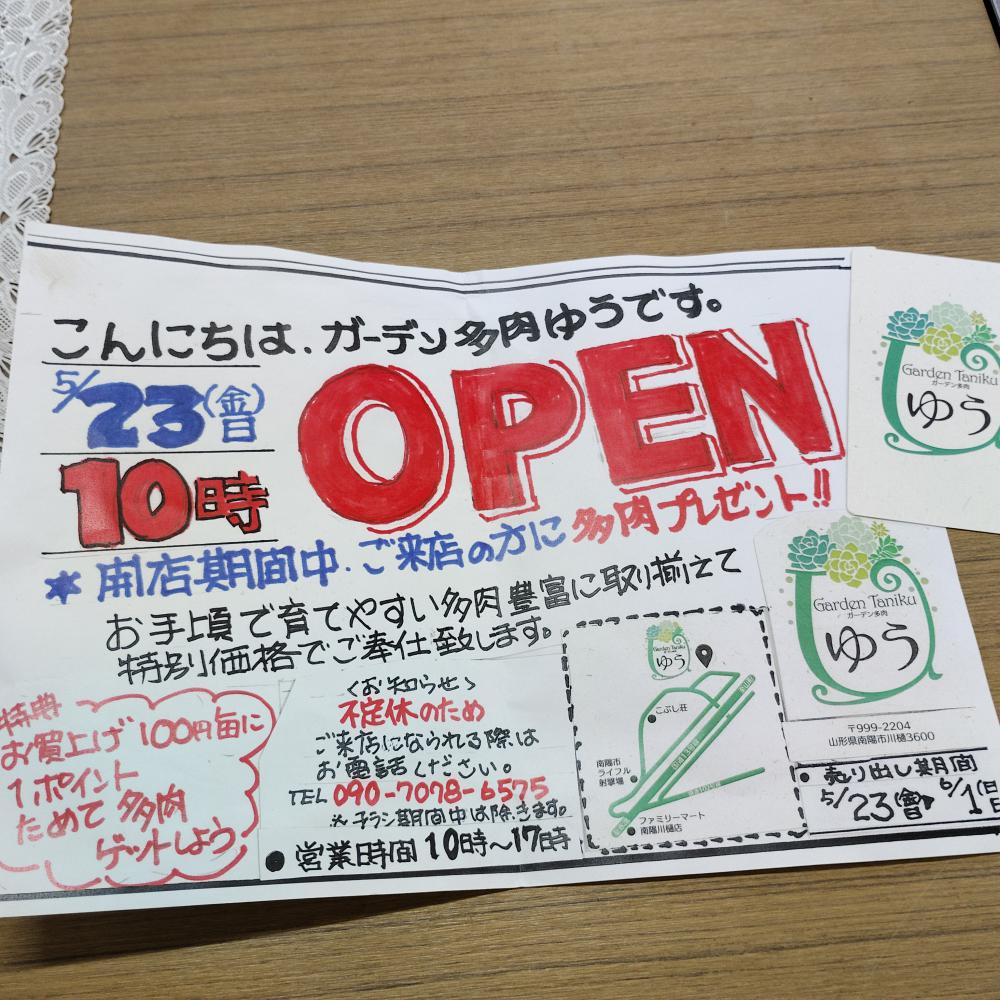 こんにちは、ガーデン多肉ゆうです。
5/23(金)日
10時
OPEN
* 開店期間中、ご来店の方に多肉プレゼント!!
お手頃で育てやすい多肉豊富に取り揃えて
特別価格でご奉仕致します。
特典
お買上げ100円毎に
1ポイント
ためて多肉
ゲットしよう
<お知らせ>
不定休のため
ご来店になられる際は
お電話ください。
TEL 090-7078-6575
※チラシ期間中は除きます。
●営業時間10時~17時
Garden Taniku
ガーデン多肉
ゆう
こぶし荘
南陽市
ライフル
射撃場
国道13号線
ファミリーマート
南陽川樋店
Garden Taniku
ガーデン多肉
ゆう
Garden Taniku
ガーデン多肉
ゆう
〒999-2204
山形県南陽市川樋3600
●売り出し期間
5/23 6/1